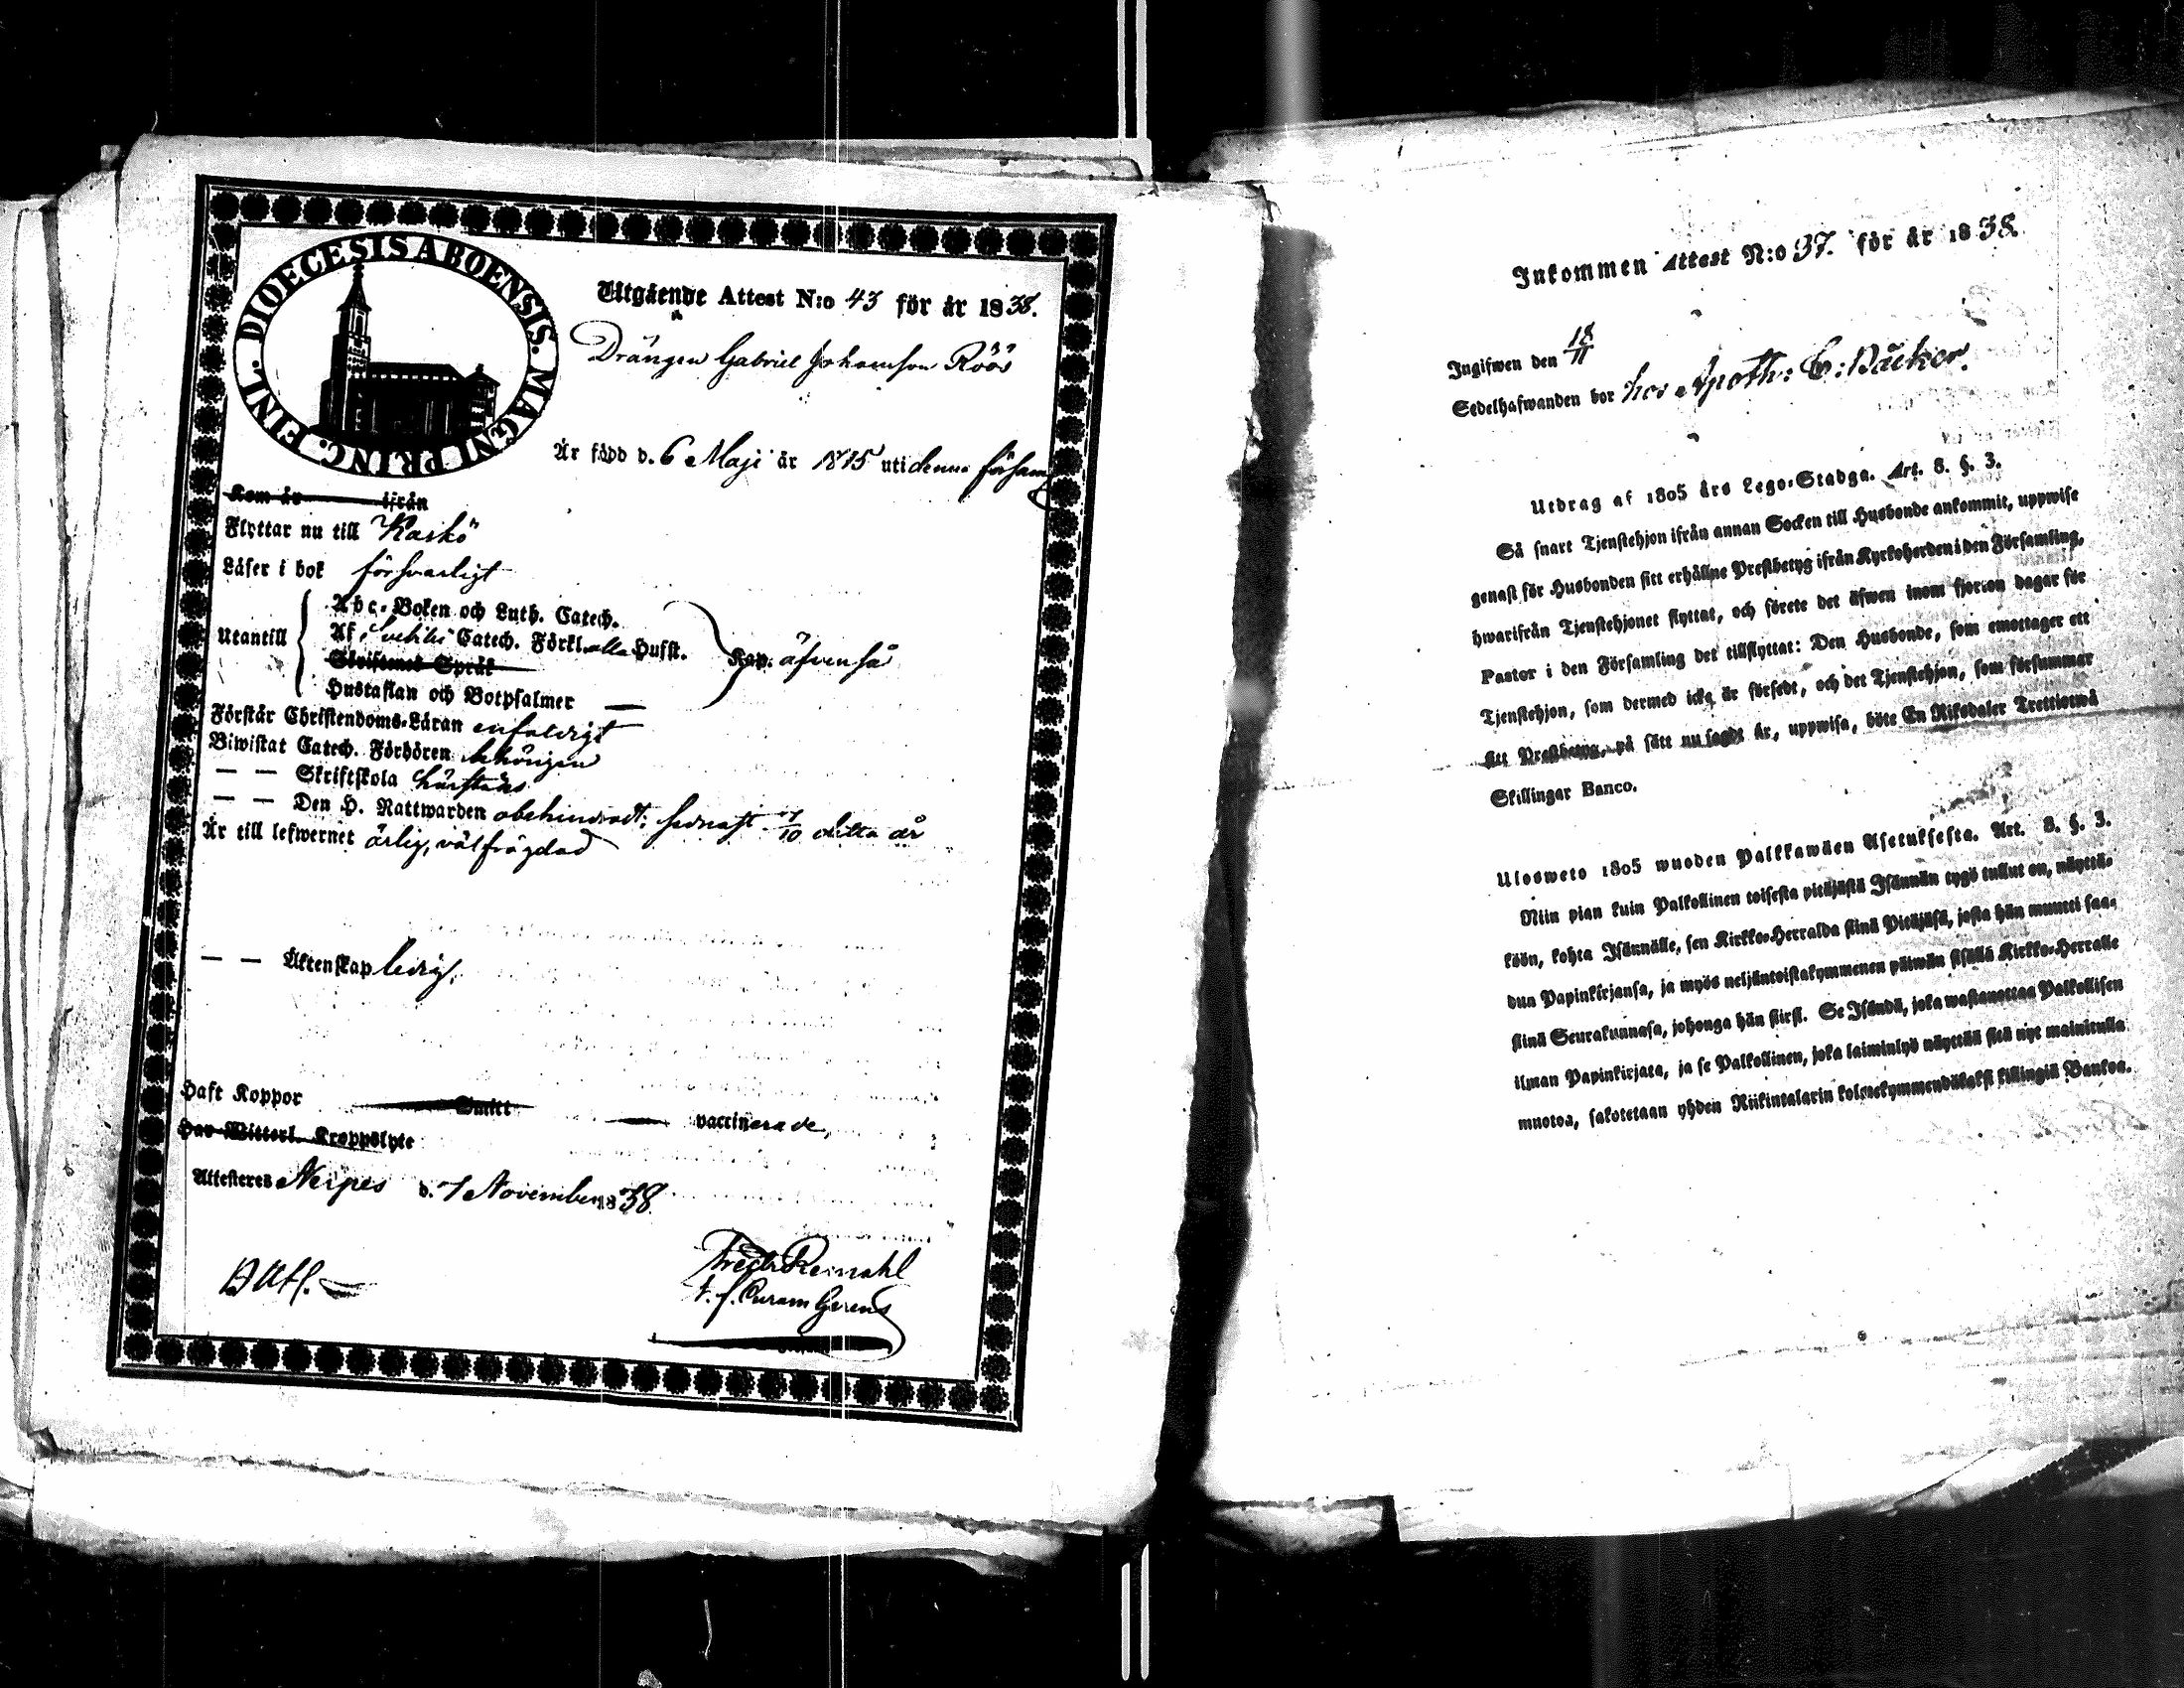 DIOECESIS ABOENSIS. MAGNI PRINC. FINL.
Utgående Attest N:o 43 för år 1838.
Drängen Gabriel Johansson Röös
Är född d. 6 Maji år 1815 uti denna församl
Kom år ifrån
Flyttar nu till Kaskö
Läser i bok försvarligt
Abc-Boken och Luth. Catech.
Utantill
Af Svebilii Catech. Förkl. alla Hufst.
Kap. äfvenså
Skriftenes Språk
Hustaflan och Botpsalmer —
Förstår Christendoms-Läran enfaldigt
Biwistat Catech. Förhören behörigen
— — Skriftskola härstädes
— — Den H. Nattwarden obehindradt; sednast 7/10 detta år
Är till lefwernet ärlig, välfrägdad
— — Äktenskap ledig.
Haft Koppor Smitt — vaccinerade,
Har Witterl. Kroppslyte
Attesteras Nerpes d. 7 November 1838.
Fredr Reinahl
t. f. Curam Gerens
Inkommen Attest N:o 37. för år 1838.
Ingifwen den 18/11
Sedelhafwanden bor hos Apoth: E: Bäcker.
Utdrag af 1805 års Lego-Stadga. Art. 8. §. 3.
Så snart Tjenstehjon ifrån annan Socken till Husbonde ankommit, uppwise
genast för Husbonden sitt erhållne Prestbetyg ifrån Kyrkoherden i den Församling,
hwarifrån Tjenstehjonet flyttat, och förete det äfwen inom fjorton dagar för
Pastor i den Församling det tillflyttat: Den Husbonde, som emottager ett
Tjenstehjon, som dermed icke är försedt, och det Tjenstehjon, som försummar
sitt Prestbetyg, på sätt nu sagdt är, uppwisa, böte En Riksdaler Trettiotwå
Skillingar Banco.
Ulosweto 1805 wuoden Palkkawäen Asetuksesta. Art. 8. §. 3.
Niin pian kuin Palkollinen toisesta pitäjästä Isännän tygö tullut on, näyttä-
köön, kohta Isännälle, sen Kirkko-Herralda siinä Pitäjäsä, josta hän muutti saa-
dun Papinkirjansa, ja myös neljäntoistakymmenen päiwän sisällä Kirkko-Herralle
siinä Seurakunnasa, johonga hän siirsi. Se Isändä, joka wastanottaa Palkollisen
ilman Papinkirjata, ja se Palkollinen, joka laiminlyö näyttää sitä nyt mainitulla
muotoa, sakotetaan yhden Riikintalarin kolmekymmendäkaksi killingiä Bankoa.